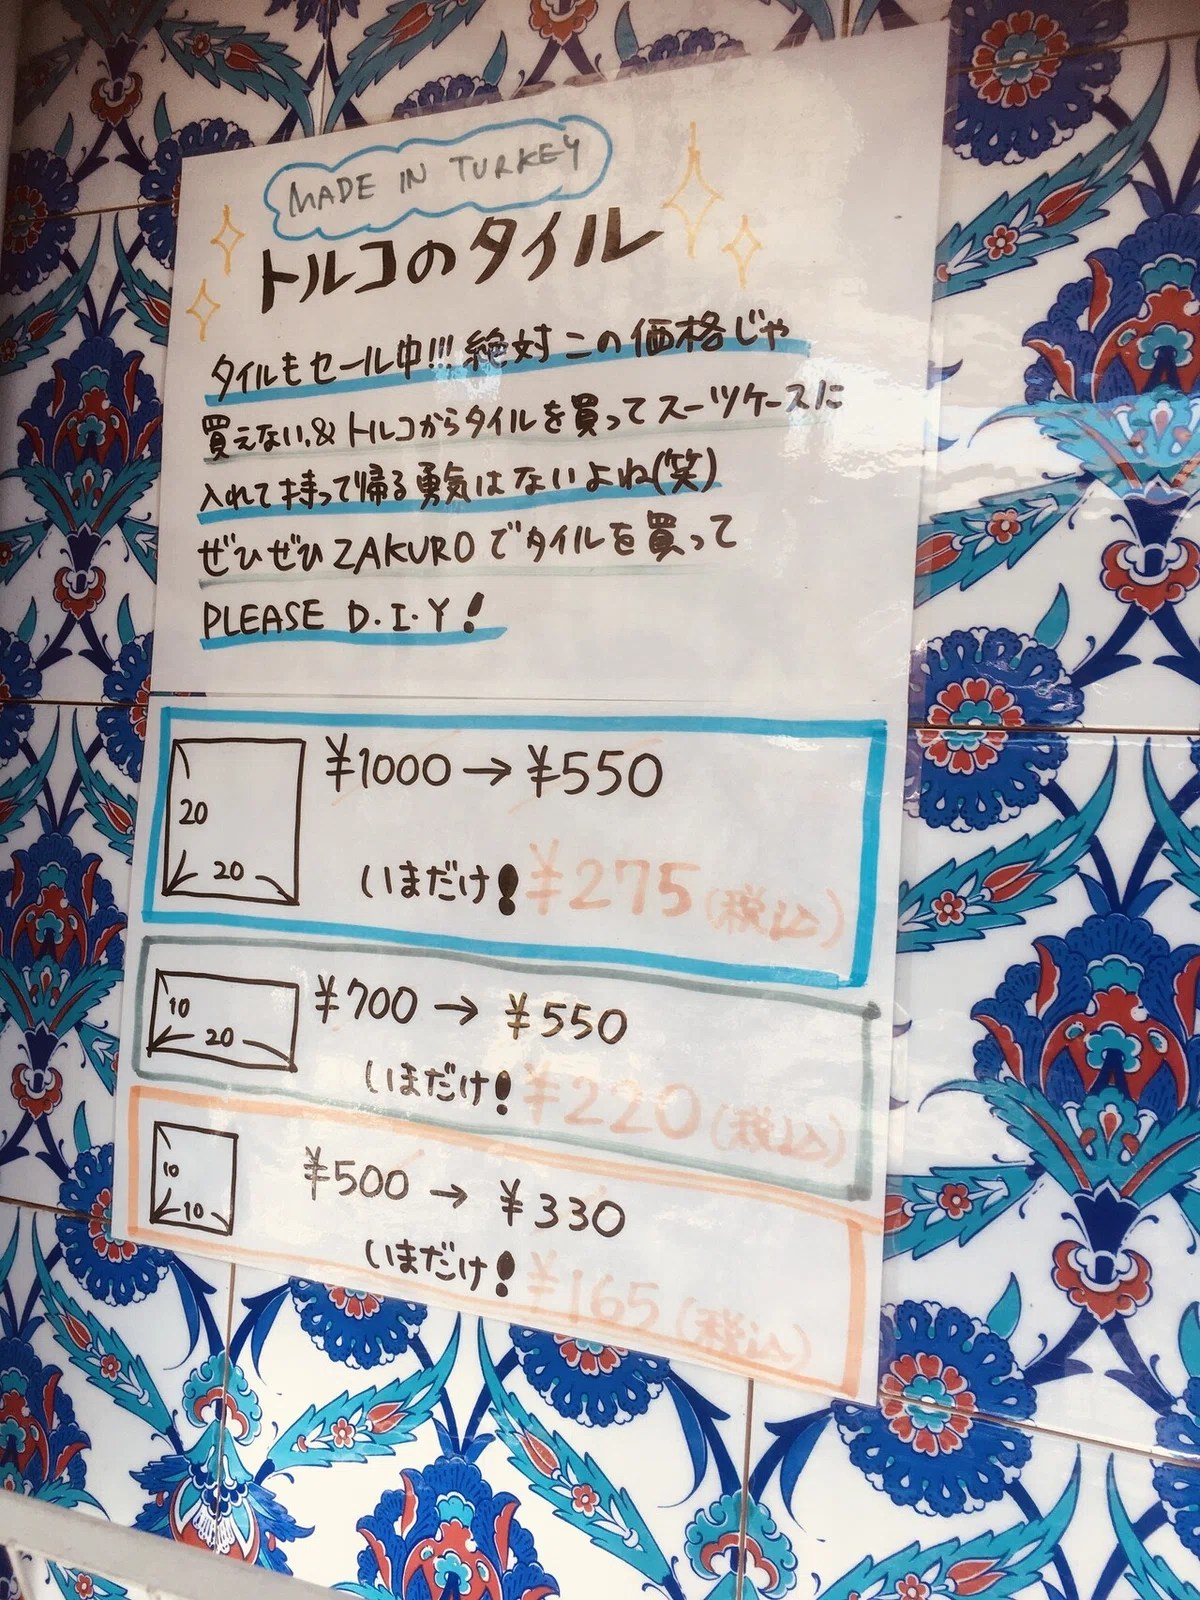 MADE IN TURKEY
トルコのタイル
タイルもセール中!!! 絶対この価格じゃ
買えない。& トルコからタイルを買ってスーツケースに
入れて持って帰る勇気はないよね(笑)
ぜひぜひ ZAKURO でタイルを買って
PLEASE D.I.Y!
20
20
¥1000→¥550
いまだけ! ¥275(税込)
10
20
¥700→¥550
いまだけ! ¥220(税込)
10
10
¥500→¥330
いまだけ! ¥165(税込)